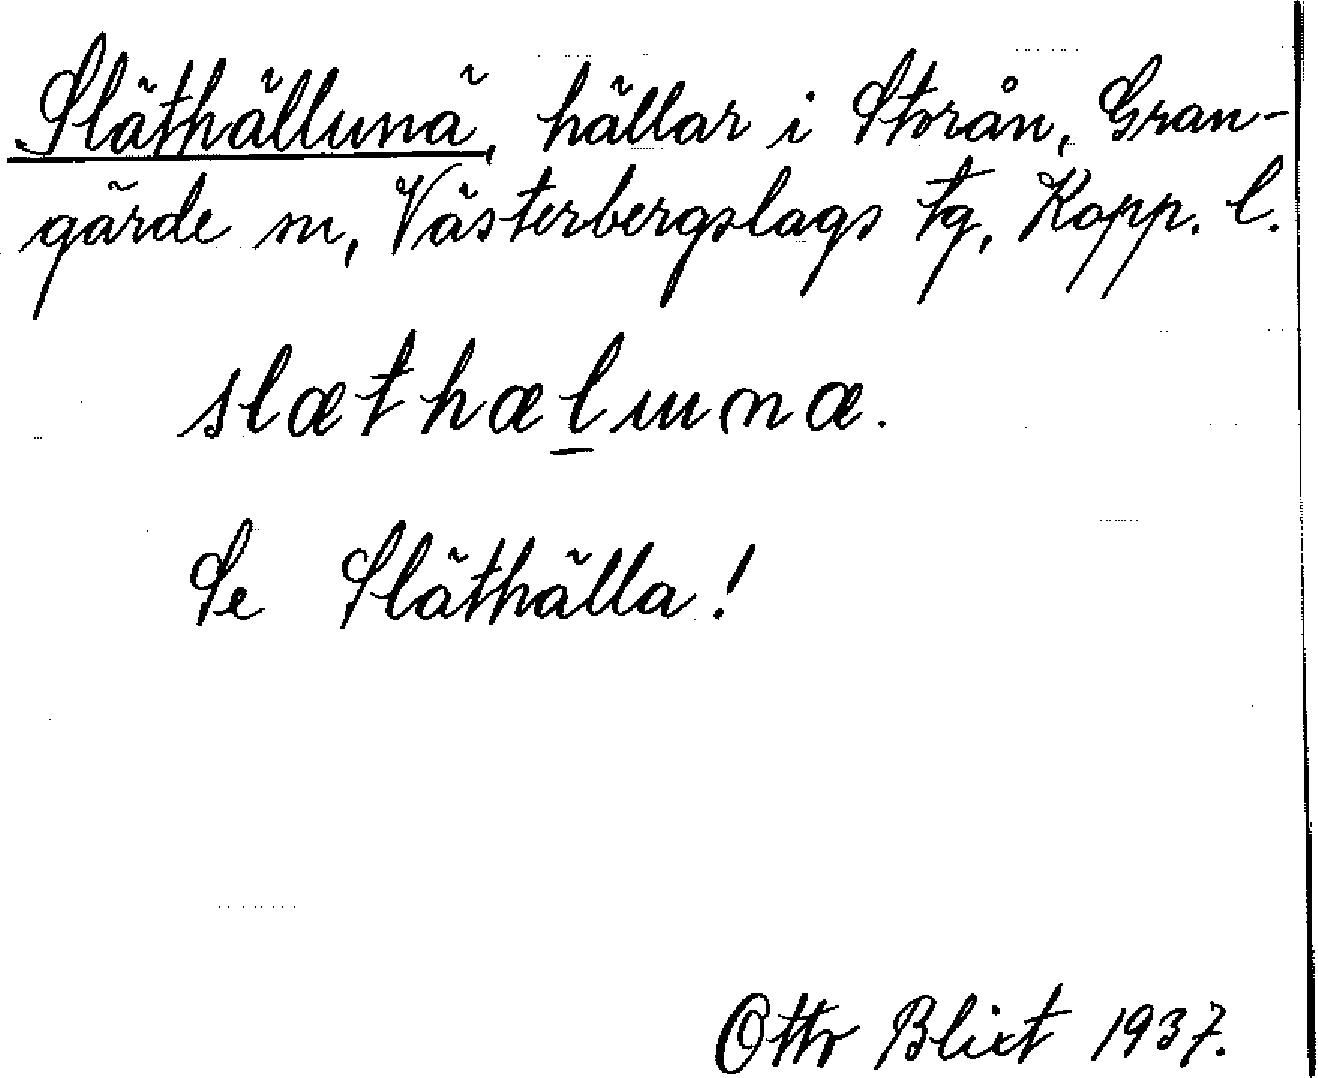 Släthällunä, hällar i Storån, Gran-
gärde sn, Västerbergslags tg, Kopp. l.
slæthæl̲ɯnæ.
Se Släthälla!
Otto Blixt 1937.